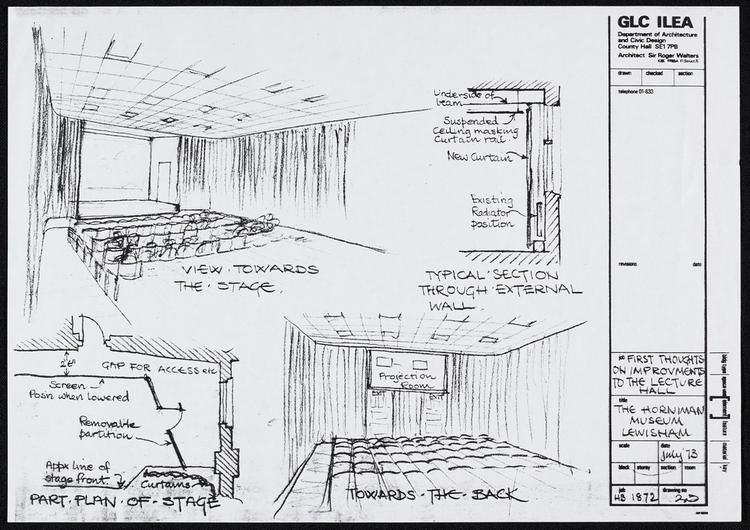 VIEW · TOWARDS
THE · STAGE.
Underside of
beam
Suspended
Ceiling masking
Curtain rail.
New Curtain
Existing
Radiator
position
TYPICAL · SECTION
THROUGH · EXTERNAL
WALL.
2'6"
GAP FOR ACCESS etc
Screen
Posn when lowered
Removable
partition
Appx line of
stage front.
Curtains
PART · PLAN · OF · STAGE
Projection
Room
EXIT
EXIT
TOWARDS · THE · BACK
GLC ILEA
Department of Architecture
and Civic Design
County Hall SE1 7PB
Architect Sir Roger Walters
drawn
checked
section
telephone 01-633
revisions
date
job FIRST THOUGHTS
ON IMPROVMENTS
TO THE LECTURE
HALL
title
THE HORNIMAN
MUSEUM
LEWISHAM
scale
date
July 73
block
storey
section
room
job
drawing no
HB 1872